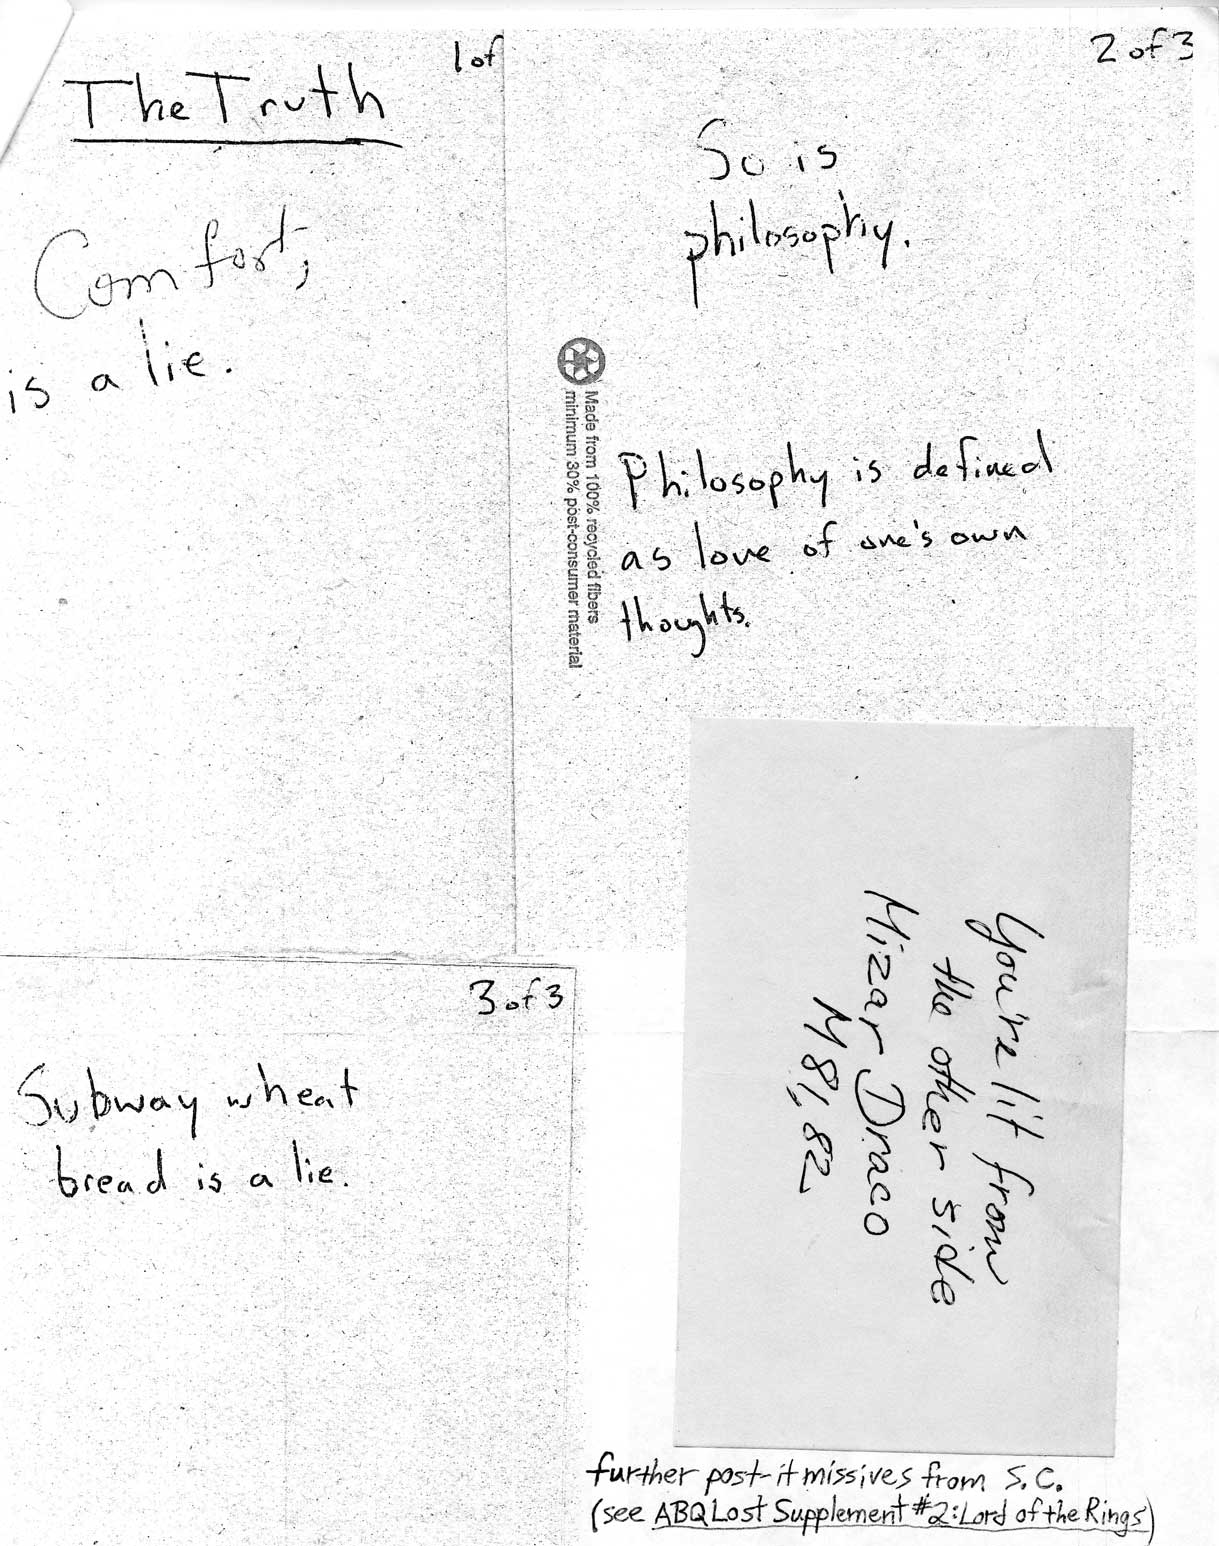 1 of
The Truth
Comfort,
is a lie.
2 of 3
So is
philosophy.
Made from 100% recycled fibers
minimum 30% post-consumer material
Philosophy is defined
as love of one's own
thoughts.
3 of 3
Subway wheat
bread is a lie.
You're lit from
the other side
Mizar Draco
M 81, 82
further post-it missives from S.C.
(see ABQ Lost Supplement #2: Lord of the Rings)